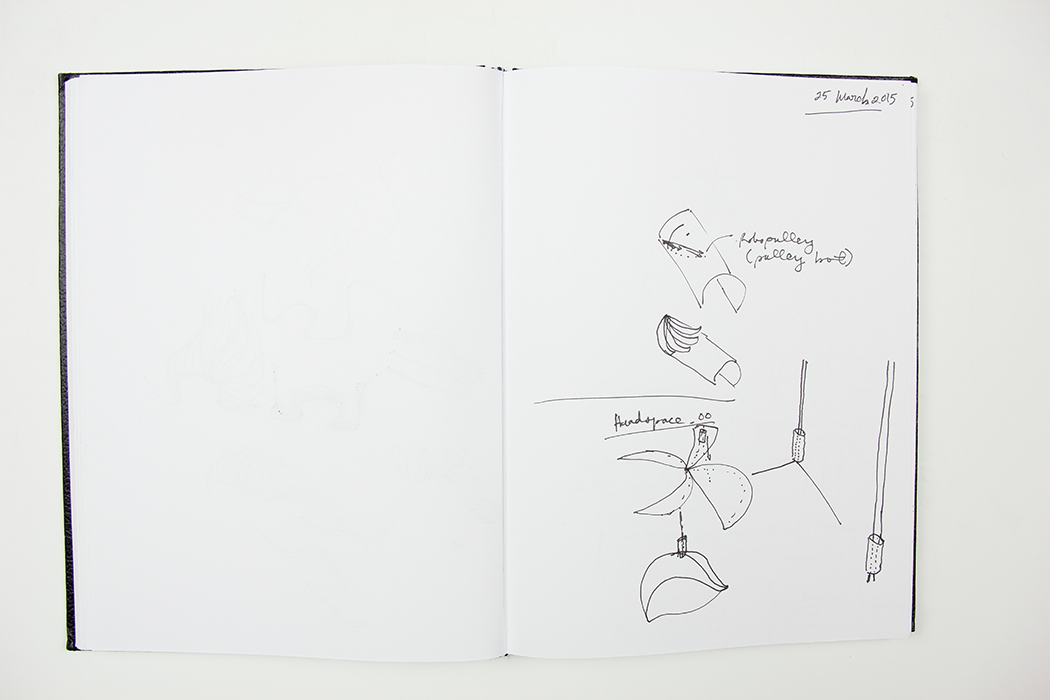 25 March 2015
Robopulley
(pulley bot)
Headspace_00